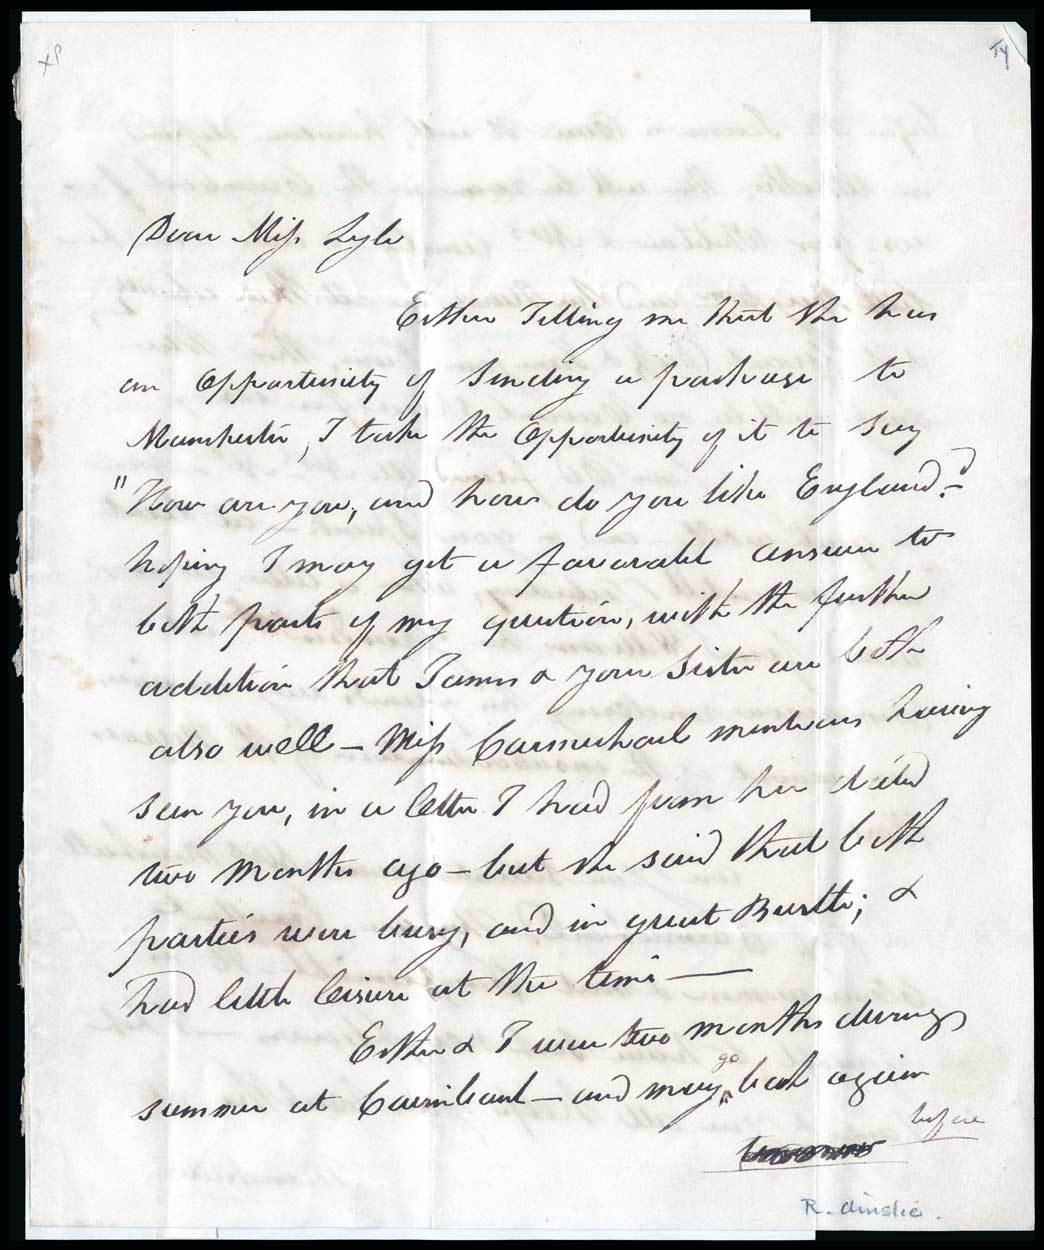 Dear Miss Lyle
Esther Telling me that she has
an opportunity of sending a package to
Manchester, I take the opportunity of it to say
"How are you, and how do you like England?"
hoping I may get a favorable answer to
both parts of my question, with the further
addition that James & your Sister are both
also well – Miss Carmichael mentions having
seen you, in a letter I had from her dated
two months ago – but she said that both
parties were busy, and in great Bustle; &
had little leisure at the time —
Esther & I were two months during
summer at Cairnbank – and may go back again
before
R. Ainslie.